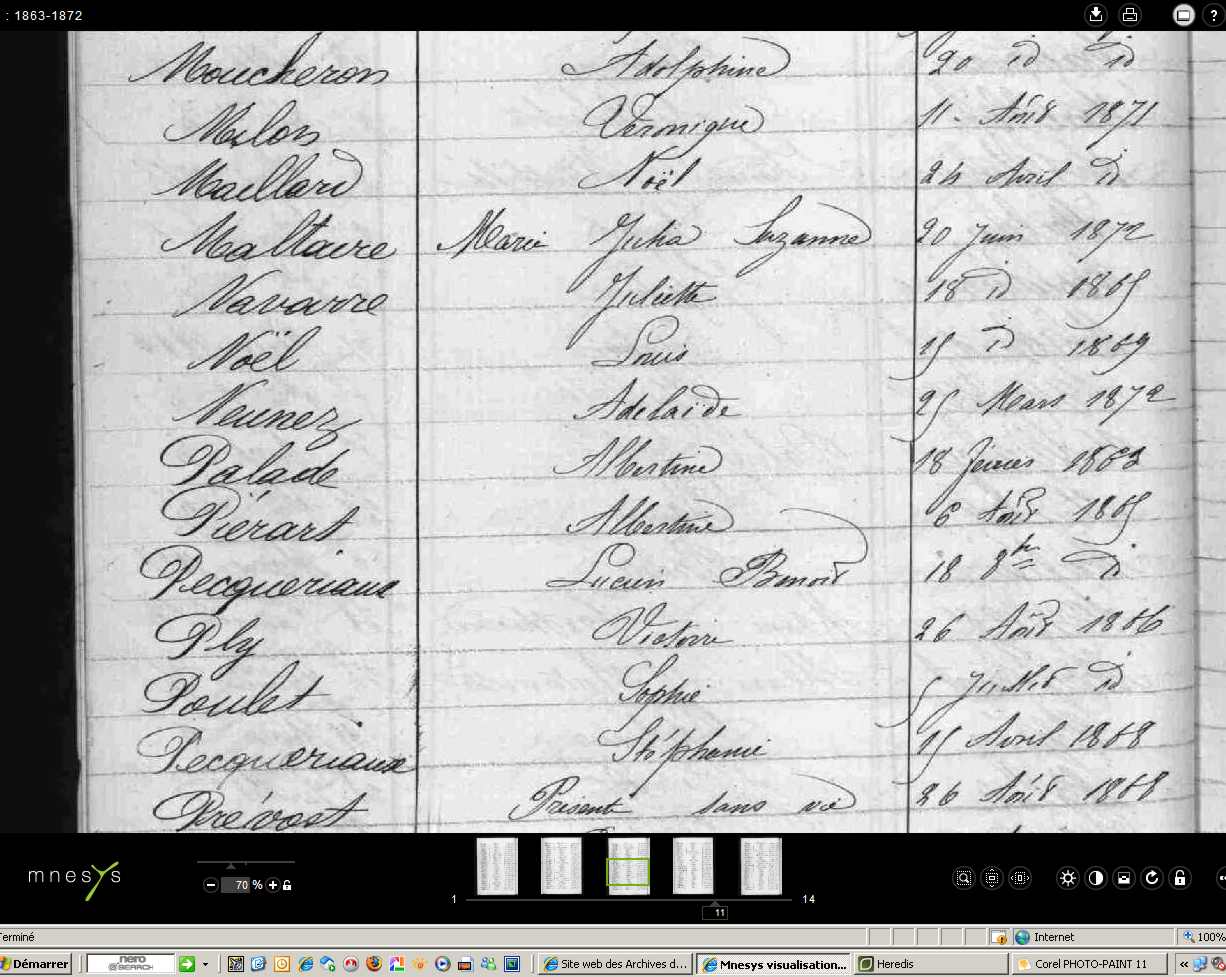 : 1863-1872 ?
Moucheron Adolphine 20 id id
Milon Véronique 11 Août 1871
Maillard Noël 24 Avril id
Maltaire Marie Julia Suzanne 20 Juin 1872
Navarre Juliette 18 id 1865
Noël Louis 15 id 1869
Neunez Adelaïde 25 Mars 1872
Palade Albertine 18 1863
Pierart Albertine 6 Août 1865
Pecqueriaux Lucien Benoit 18 8bre id
Ply Victoire 26 Août 1866
Poulet Sophie 5 Juillet id
Pecqueriaux Stéphanie 15 Avril 1868
Prévost Présent sans vie 26 Août 1868
mnesys 70 % 1 14
11
Terminé Internet 100%
Démarrer nero SEARCH Site web des Archives d... Mnesys visualisation... Heredis Corel PHOTO-PAINT 11 «